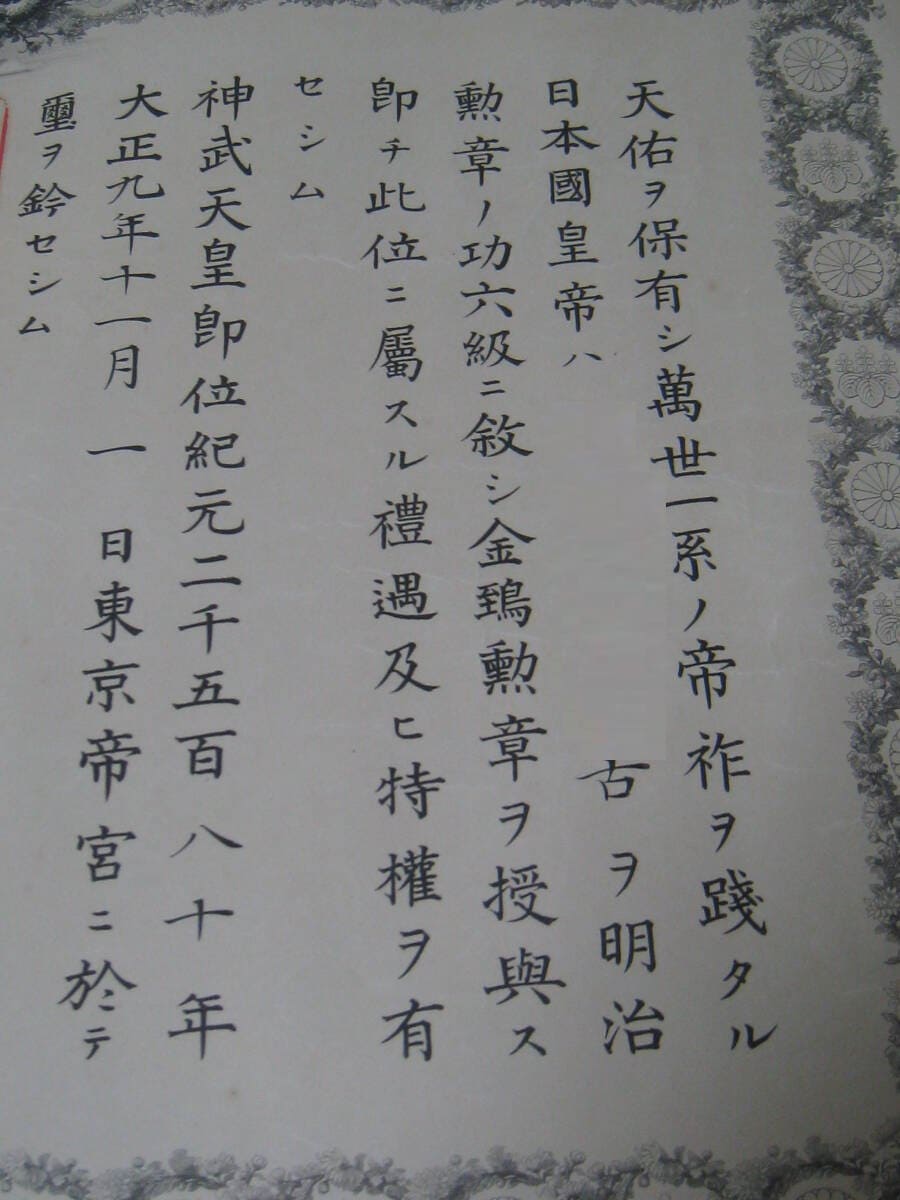 天佑ヲ保有シ萬世一系ノ帝祚ヲ踐タル
日本國皇帝ハ 古ヲ明治
勲章ノ功六級ニ敘シ金鵄勲章ヲ授與ス
卽チ此位ニ屬スル禮遇及ヒ特權ヲ有
セシム
神武天皇卽位紀元二千五百八十年
大正九年十一月一日東京帝宮ニ於テ
璽ヲ鈐セシム